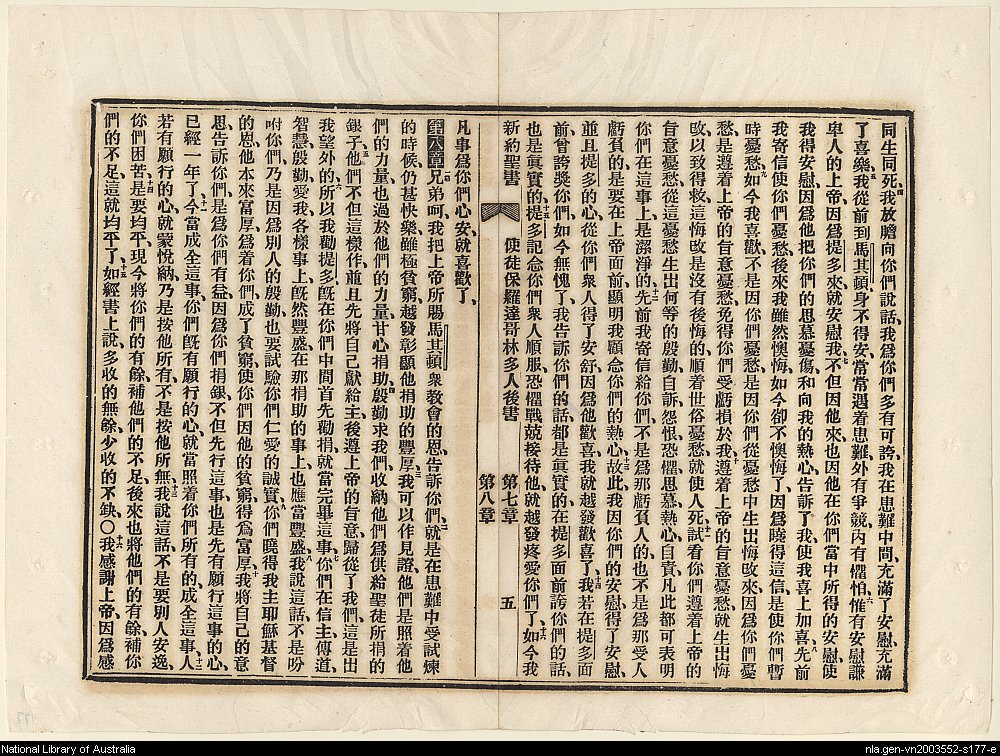 同生同死、四我放膽向你們說話、我爲你們多有可誇、我在患難中間、充滿了安慰、充滿
了喜樂、五我從前到馬其頓、身不得安、常常遇着患難、外有爭競、內有懼怕、六惟有安慰謙
卑人的上帝、因爲提多來、就安慰我、七不但因他來、也因他在你們當中所得的安慰、使
我得安慰、因爲他把你們的思慕憂傷、和向我的熱心、告訴了我、使我喜上加喜、八先前
我寄信、使你們憂愁、後來我雖然懊悔、如今卻不懊悔了、因爲曉得這信、是使你們暫
時憂愁、九如今我喜歡、不是因你們憂愁、是因你們從憂愁中生出悔改來、因爲你們憂
愁、是遵着上帝的旨意憂愁、免得你們受虧損於我、十遵着上帝的旨意憂愁、就生出悔
改、以致得救、這悔改是沒有後悔的、順着世俗憂愁、就使人死、十一試看你們遵着上帝的
旨意憂愁、從這憂愁生出何等的殷勤、自訴、怨恨、恐懼、思慕、熱心、自責、凡此都可表明
你們在這事上、是潔淨的、十二先前我寄信給你們、不是爲那虧負人的、也不是爲那受人
虧負的、是要在上帝面前、顯明我顧念你們的熱心、十三故此我因你們的安慰、得了安慰、
並且提多的心、從你們衆人得了安舒、因爲他歡喜、我就越發歡喜了、十四我若在提多面
前、曾誇獎你們、如今無愧了、我告訴你們的話、都是眞實的、在提多面前誇你們的話、
也是眞實的、十五提多記念你們衆人順服、恐懼戰兢接待他、就越發疼愛你們了、十六如今我
新約聖書 使徒保羅達哥林多人後書 第七章 第八章 五
凡事爲你們心安、就喜歡了、
第八章 一兄弟呵、我把上帝所賜馬其頓衆教會的恩、告訴你們、二就是在患難中受試煉
的時候、仍甚快樂、雖極貧窮、越發彰顯他捐助的豐厚、三我可以作見證、他們是照着他
們的力量、也過於他們的力量、甘心捐助、四殷勤求我們、收納他們爲供給聖徒所捐的
銀子、五他們不但這樣作、並且先將自己獻給主、後遵上帝的旨意、歸從了我們、這是出
我望外的、六所以我勸提多、旣在你們中間首先勸捐、就當完畢這事、七你們在信主、傳道、
智慧、殷勤、愛我、各樣事上、旣然豐盛、在那捐助的事上、也應當豐盛、八我說這話、不是吩
咐你們、乃是因爲別人的殷勤、也要試驗你們仁愛的誠實、九你們曉得我主耶穌基督
的恩、他本來富厚、爲着你們、成了貧窮、使你們因他的貧窮、得爲富厚、十我將自己的意
思告訴你們、是爲你們有益、因爲你們捐銀、不但先行這事、也是先有願行這事的心、
已經一年了、十一今當成全這事、你們旣有願行的心、就當照着你們所有的、成全這事、十二人
若有願行的心、就蒙悅納、乃是按他所有、不是按他所無、十三我說這話、不是要別人安逸、
你們困苦、十四是要均平、現今將你們的有餘、補他們的不足、後來也將他們的有餘、補你
們的不足、這就均平了、十五如經書上說、多收的無餘、少收的不缺、〇十六我感謝上帝、因爲感
National Library of Australia
nla.gen-vn2003552-s177-e